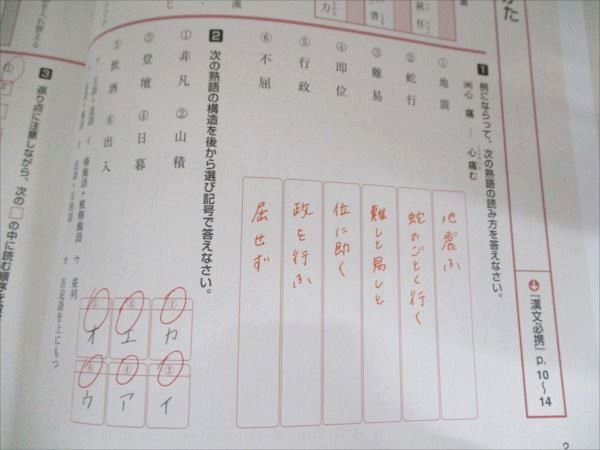 かた
➡『漢文必携』p.10〜14
1 例にならって、次の熟語の読み方を答えなさい。
例 心痛——心痛む
① 地震
② 蛇行
③ 難易
④ 即位
⑤ 行政
⑥ 不屈
地震ふ
蛇のごとく行く
難しと易しと
位に即く
政を行ふ
屈せず
2 次の熟語の構造を後から選び記号で答えなさい。
① 非凡 ② 山積
③ 登壇 ④ 日暮
⑤ 飲酒 ⑥ 出入
イ 修飾語＋被修飾語 ウ 並列
オ 否定語を上にもつ
① カ ② イ
③ エ ④ ア
⑤ オ ⑥ ウ
3 返り点に注意しながら、次の□の中に読む順序を